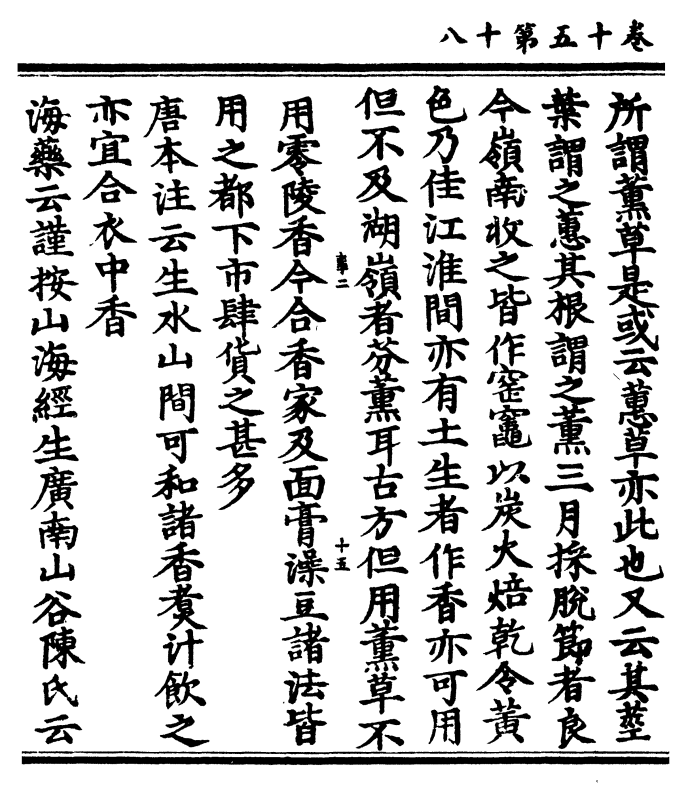 卷十五第十八
所謂薰草是或云蕙草亦此也又云其莖
葉謂之蕙其根謂之薰三月採脫節者良
今嶺南收之皆作窑竈以炭火焙乾令黃
色乃佳江淮間亦有土生者作香亦可用
但不及湖嶺者芬薰耳古方但用薰草不
用零陵香今合香家及面膏澡豆諸法皆
用之都下市肆貨之甚多
唐本注云生水山間可和諸香煑汁飲之
亦宜合衣中香
海藥云謹按山海經生廣南山谷陳氏云
十五